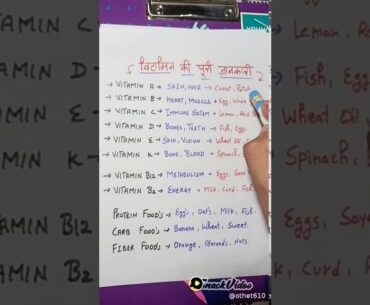 विटामिन की पूरी जानकारी
→ VITAMIN A → SKIN, HAIR → Carrot, Potato
→ VITAMIN B → HEART, MUSCLE → Egg, Whole
→ VITAMIN C → IMMUNE SYSTEM → Lemon, Red
→ VITAMIN D → BONES, TEETH → Fish, Eggs
→ VITAMIN E → SKIN, VISION → Wheat Oil
→ VITAMIN K → BONE, BLOOD → Spinach,
→ VITAMIN B12 → METABOLISM → Eggs, Soya
→ VITAMIN B2 → ENERGY → Milk, Curd, Fish
PROTEIN FOOD'S → Egg's, Oat's, Milk, Fish.
CARB FOOD'S → Banana, Wheat, Sweet.
FIBER FOOD'S → Orange, Almonds, Nuts.
SnackVideo
@othet610